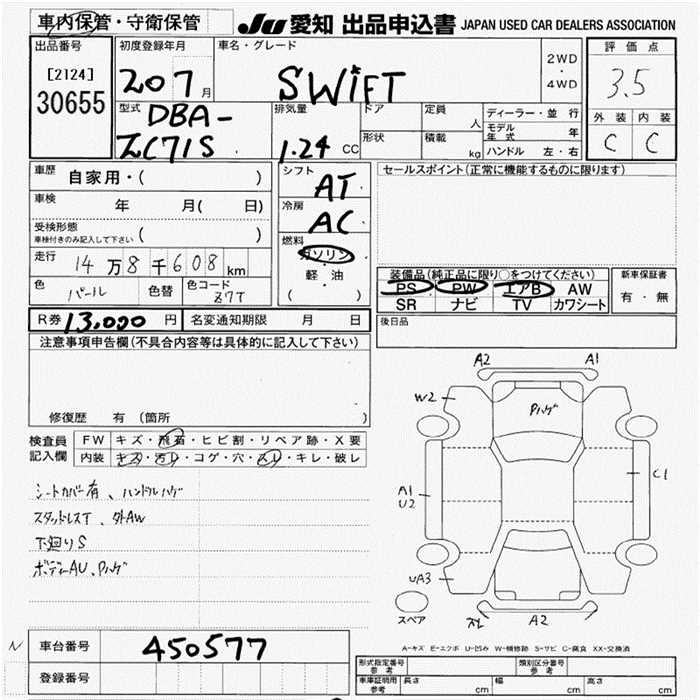 車内保管・守衛保管
JU 愛知 出品申込書 JAPAN USED CAR DEALERS ASSOCIATION
出品番号
[2124]
30655
初度登録年月
20 7 月
車名・グレード
SWiFT
2WD
・
4WD
評価点
3.5
外装 内装
C C
型式
DBA-
ZC71S
排気量
1.24 CC
ドア
形状
定員 人
積載 kg
ディーラー・並行
モデル年式 年
ハンドル 左・右
車歴 自家用・( )
車検 年 月( 日)
受検形態
車検付きのみ記入して下さい ( )
走行 14万8千608km
色 パール 色替 色コード Z7T
シフト AT
冷房 AC
燃料
ガソリン
・
軽・油
( )
セールスポイント(正常に機能するものに限ります)
装備品(純正品に限り○をつけてください)
PS PW エアB AW
SR ナビ TV カワシート
新車保証書
有・無
R券 13,000 円 名変通知期限 月 日
後日品
注意事項申告欄(不具合内容等は具体的に記入して下さい)
修復歴 有(箇所 )
検査員
記入欄
FW キズ・飛石・ヒビ割・リペア跡・X要
内装 キズ・汚レ・コゲ・穴・スレ・キレ・破レ
シートカバー有、ハンドルハゲ
スタッドレスT、外AW
下廻りS
ボディーAU、Pハゲ
A2 A1
W2
Pハゲ
A1
U2
C1
UA3
スレ A2
スペア
N
車台番号 450577
登録番号
A-キズ E-エクボ U-凹み W-補修跡 S-サビ C-腐食 XX-交換済
形式指定番号 参考 類別区分番号 参考
車庫証明用 参考 長さ cm 幅 cm 高さ cm